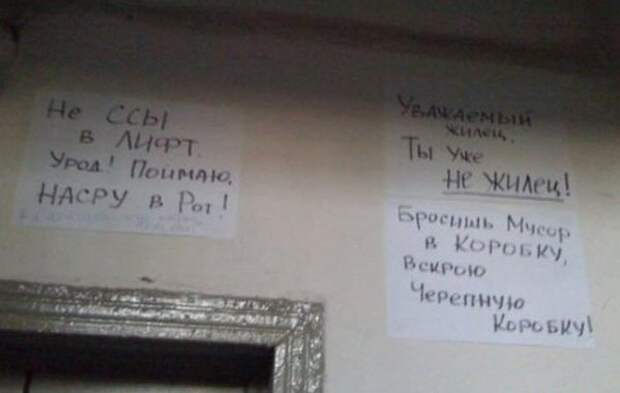 Не ССЫ
в ЛИФТ.
Урод! Поймаю,
НАСРУ в Рот!
Уважаемый
жилец,
Ты уже
НЕ ЖИЛЕЦ!
Бросишь Мусор
в КОРОБКУ,
Вскрою
Черепную
Коробку!